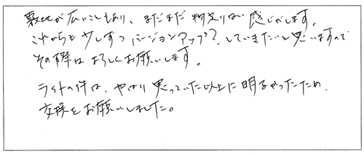 敷地が広いこともあり、まだまだ物足りない感じがします。
これからも少しずつバージョンアップ?していきたいと思いますので
その際はよろしくお願いします。
ライトの件は、やはり思っていた以上に明るかったため、
交換をお願いしました。